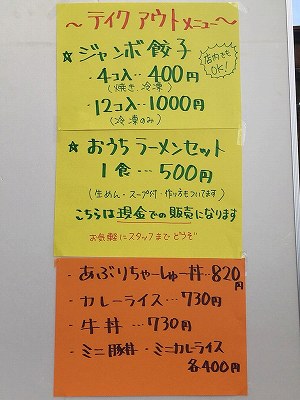 ～テイクアウトメニュー～
☆ジャンボ餃子
店内でもOK！
・4コ入…400円
(焼き、冷凍)
・12コ入…1000円
(冷凍のみ)
☆おうちラーメンセット
1食…500円
(生めん・スープ付・作り方もついてます)
こちらは現金での販売になります
お気軽にスタッフまでどうぞ
・あぶりちゃーしゅー丼…820円
・カレーライス…730円
・牛丼…730円
・ミニ豚丼・ミニカレーライス
各400円